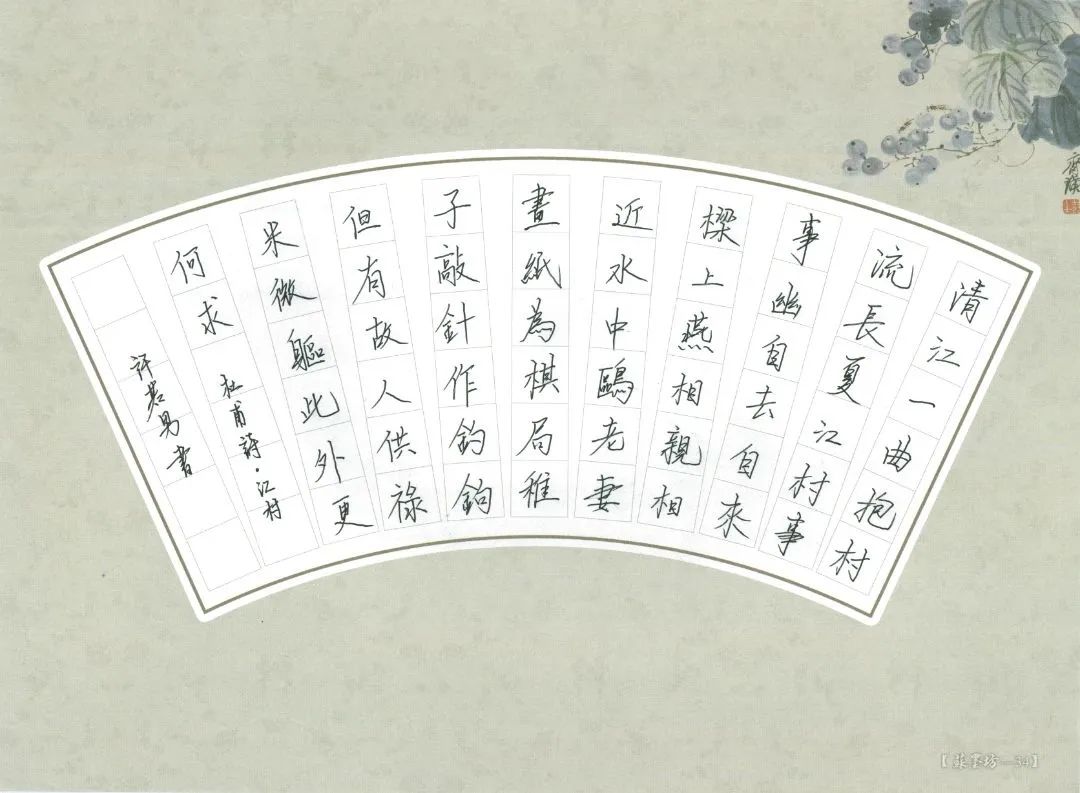 清江一曲抱村
流長夏江村事
事幽自去自來
樑上燕相親相
近水中鷗老妻
畫紙為棋局稚
子敲針作釣鉤
但有故人供祿
米微軀此外更
何求 杜甫詩·江村
許 書
墨坊—34】